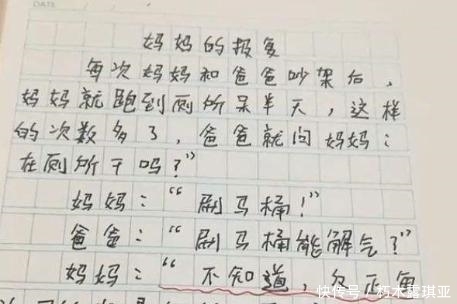 DATE
妈妈的报复
每次妈妈和爸爸吵架后，
妈妈就跑到厕所呆半天，这样
的次数多了，爸爸就问妈妈：
在厕所干吗？”
妈妈：“刷马桶！”
爸爸：“刷马桶能解气？”
妈妈：“不知道，反正每
快传号／朽木露琪亚